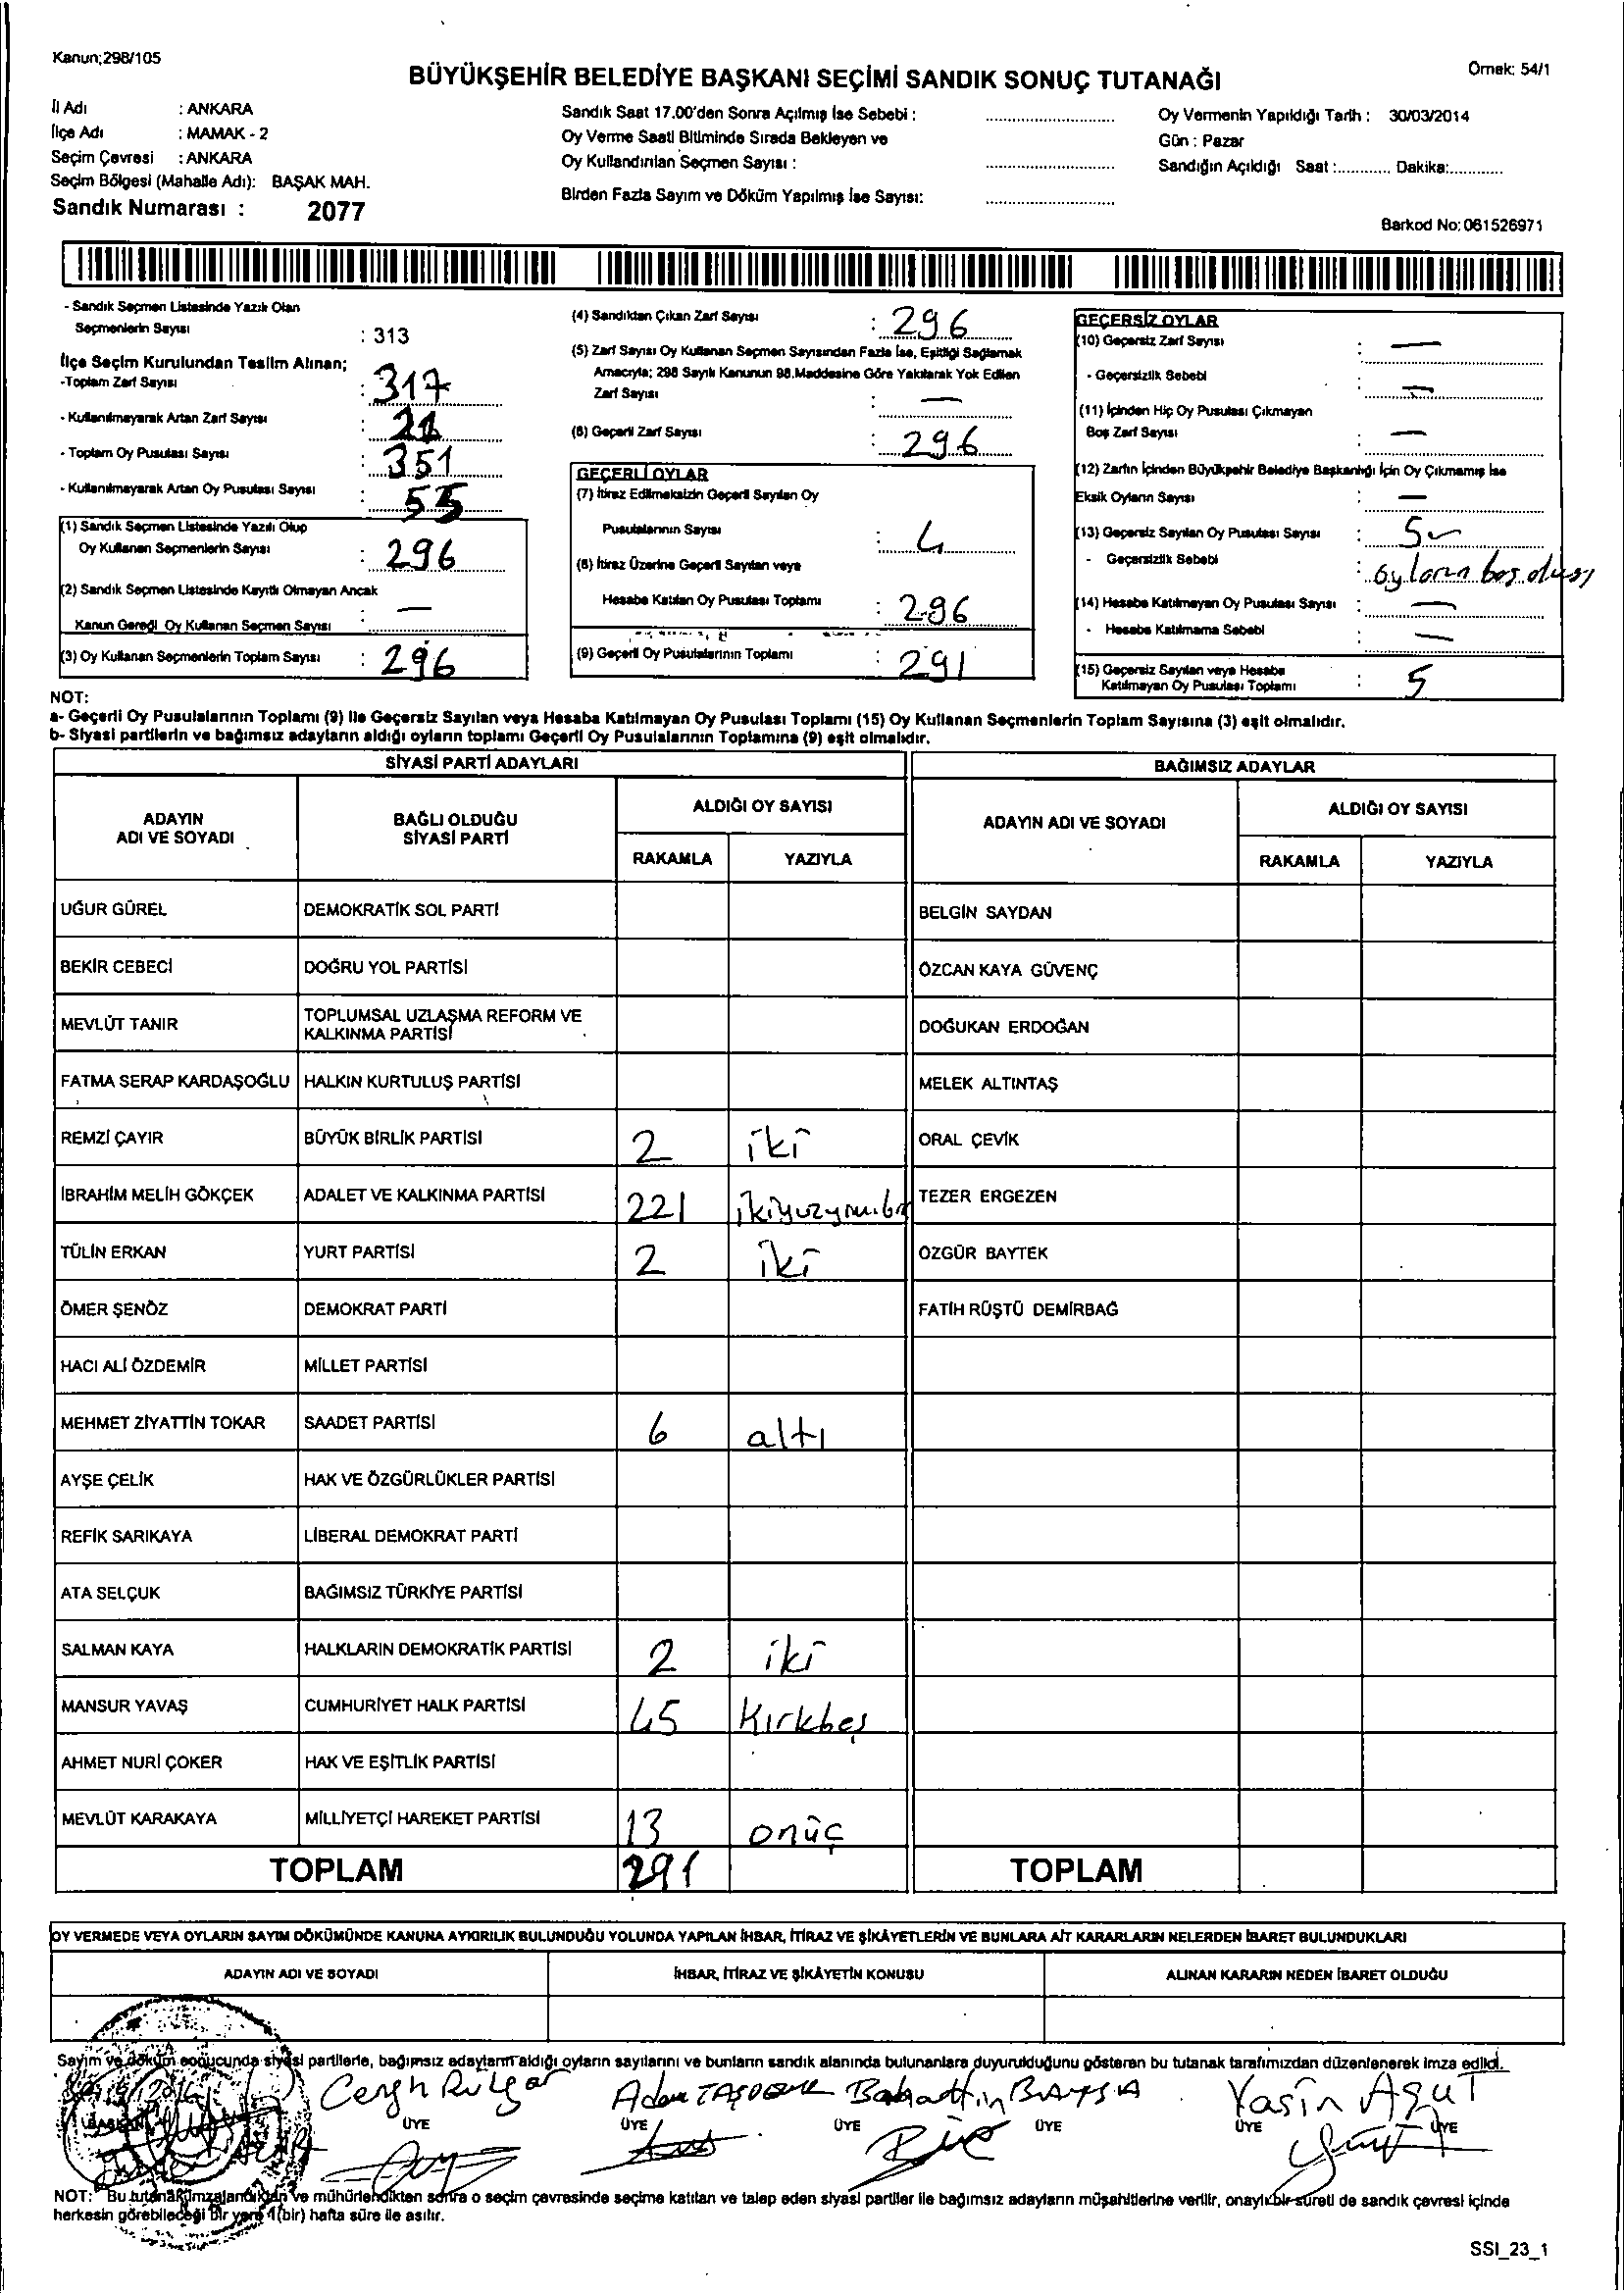 Kanun;298/105
Örnek: 54/1
BÜYÜKŞEHİR BELEDİYE BAŞKANI SEÇİMİ SANDIK SONUÇ TUTANAĞI
İl Adı : ANKARA
İlçe Adı : MAMAK - 2
Seçim Çevresi : ANKARA
Seçim Bölgesi (Mahalle Adı): BAŞAK MAH.
Sandık Numarası : 2077
Sandık Saat 17.00'den Sonra Açılmış İse Sebebi :
Oy Verme Saati Bitiminde Sırada Bekleyen ve
Oy Kullandırılan Seçmen Sayısı :
Birden Fazla Sayım ve Döküm Yapılmış İse Sayısı:
Oy Vermenin Yapıldığı Tarih : 30/03/2014
Gün : Pazar
Sandığın Açıldığı Saat :............ Dakika:............
Barkod No: 061526971
- Sandık Seçmen Listesinde Yazılı Olan
Seçmenlerin Sayısı : 313
İlçe Seçim Kurulundan Teslim Alınan;
-Toplam Zarf Sayısı : 317
- Kullanılmayarak Artan Zarf Sayısı : 21
- Toplam Oy Pusulası Sayısı : 351
- Kullanılmayarak Artan Oy Pusulası Sayısı : 55
(1) Sandık Seçmen Listesinde Yazılı Olup
Oy Kullanan Seçmenlerin Sayısı : 296
(2) Sandık Seçmen Listesinde Kayıtlı Olmayan Ancak
Kanun Gereği Oy Kullanan Seçmen Sayısı : —
(3) Oy Kullanan Seçmenlerin Toplam Sayısı : 296
(4) Sandıktan Çıkan Zarf Sayısı : 296
(5) Zarf Sayısı Oy Kullanan Seçmen Sayısından Fazla İse, Eşitliği Sağlamak
Amacıyla; 298 Sayılı Kanunun 98.Maddesine Göre Yakılarak Yok Edilen
Zarf Sayısı : —
(6) Geçerli Zarf Sayısı : 296
GEÇERLİ OYLAR
(7) İtiraz Edilmeksizin Geçerli Sayılan Oy
Pusulalarının Sayısı : 4
(8) İtiraz Üzerine Geçerli Sayılan veya
Hesaba Katılan Oy Pusulası Toplamı : 296
(9) Geçerli Oy Pusulalarının Toplamı : 291
GEÇERSİZ OYLAR
(10) Geçersiz Zarf Sayısı : —
- Geçersizlik Sebebi : —
(11) İçinden Hiç Oy Pusulası Çıkmayan
Boş Zarf Sayısı : —
(12) Zarfın İçinden Büyükşehir Belediye Başkanlığı İçin Oy Çıkmamış İse
Eksik Oyların Sayısı : —
(13) Geçersiz Sayılan Oy Pusulası Sayısı : 5
- Geçersizlik Sebebi : oyların boş
(14) Hesaba Katılmayan Oy Pusulası Sayısı : —
- Hesaba Katılmama Sebebi : —
(15) Geçersiz Sayılan veya Hesaba
Katılmayan Oy Pusulası Toplamı : 5
NOT:
a- Geçerli Oy Pusulalarının Toplamı (9) İle Geçersiz Sayılan veya Hesaba Katılmayan Oy Pusulası Toplamı (15) Oy Kullanan Seçmenlerin Toplam Sayısına (3) eşit olmalıdır.
b- Siyasi partilerin ve bağımsız adayların aldığı oyların toplamı Geçerli Oy Pusulalarının Toplamına (9) eşit olmalıdır.
SİYASİ PARTİ ADAYLARI
BAĞIMSIZ ADAYLAR
ADAYIN ADI VE SOYADI
BAĞLI OLDUĞU SİYASİ PARTİ
ALDIĞI OY SAYISI
RAKAMLA YAZIYLA
ADAYIN ADI VE SOYADI
ALDIĞI OY SAYISI
RAKAMLA YAZIYLA
UĞUR GÜREL DEMOKRATİK SOL PARTİ BELGİN SAYDAN
BEKİR CEBECİ DOĞRU YOL PARTİSİ ÖZCAN KAYA GÜVENÇ
MEVLÜT TANIR TOPLUMSAL UZLAŞMA REFORM VE KALKINMA PARTİSİ DOĞUKAN ERDOĞAN
FATMA SERAP KARDAŞOĞLU HALKIN KURTULUŞ PARTİSİ MELEK ALTINTAŞ
REMZİ ÇAYIR BÜYÜK BİRLİK PARTİSİ 2 iki ORAL ÇEVİK
İBRAHİM MELİH GÖKÇEK ADALET VE KALKINMA PARTİSİ 221 TEZER ERGEZEN
TÜLİN ERKAN YURT PARTİSİ 2 iki ÖZGÜR BAYTEK
ÖMER ŞENÖZ DEMOKRAT PARTİ FATİH RÜŞTÜ DEMİRBAĞ
HACI ALİ ÖZDEMİR MİLLET PARTİSİ
MEHMET ZİYATTİN TOKAR SAADET PARTİSİ 6 altı
AYŞE ÇELİK HAK VE ÖZGÜRLÜKLER PARTİSİ
REFİK SARIKAYA LİBERAL DEMOKRAT PARTİ
ATA SELÇUK BAĞIMSIZ TÜRKİYE PARTİSİ
SALMAN KAYA HALKLARIN DEMOKRATİK PARTİSİ 2 iki
MANSUR YAVAŞ CUMHURİYET HALK PARTİSİ 45 Kırkbeş
AHMET NURİ ÇOKER HAK VE EŞİTLİK PARTİSİ
MEVLÜT KARAKAYA MİLLİYETÇİ HAREKET PARTİSİ 13 onüç
TOPLAM 291 TOPLAM
OY VERMEDE VEYA OYLARIN SAYIM DÖKÜMÜNDE KANUNA AYKIRILIK BULUNDUĞU YOLUNDA YAPILAN İHBAR, İTİRAZ VE ŞİKÂYETLERİN VE BUNLARA AİT KARARLARIN NELERDEN İBARET BULUNDUKLARI
ADAYIN ADI VE SOYADI İHBAR, İTİRAZ VE ŞİKÂYETİN KONUSU ALINAN KARARIN NEDEN İBARET OLDUĞU
Sayım ve döküm sonucunda siyasi partilerle, bağımsız adayların aldığı oyların sayılarını ve bunların sandık alanında bulunanlara duyurulduğunu gösteren bu tutanak tarafımızdan düzenlenerek imza edildi.
Yasin AGUT
ÜYE ÜYE ÜYE ÜYE ÜYE ÜYE
NOT: Bu tutanak imzalandıktan ve mühürlendikten sonra o seçim çevresinde seçime katılan ve talep eden siyasi partiler ile bağımsız adayların müşahitlerine verilir, onaylı bir sureti de sandık çevresi içinde
herkesin görebileceği bir yere 1(bir) hafta süre ile asılır.
SSI_23_1